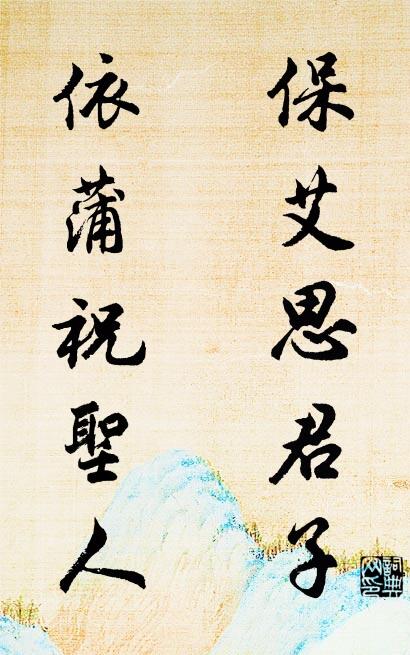 保艾思君子
依蒲祝聖人
詞典网印